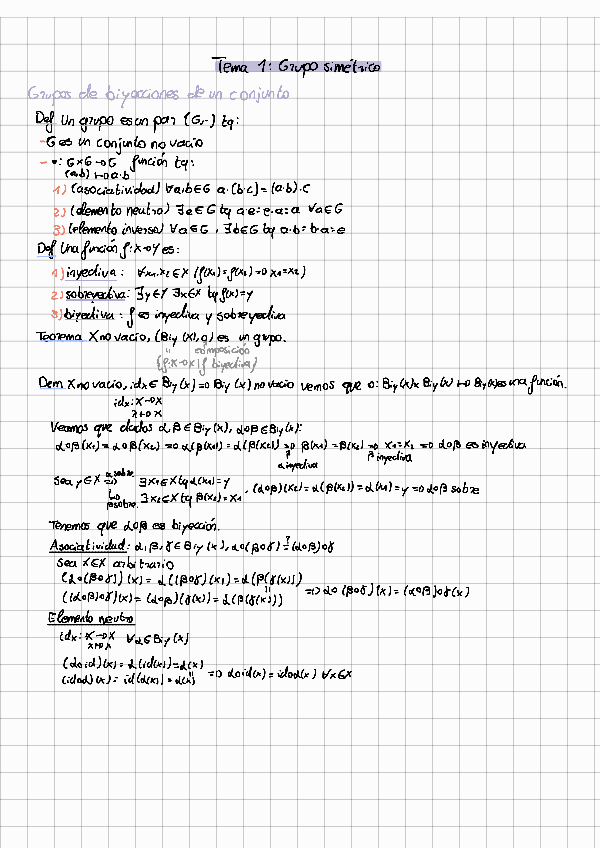 Tema 1: Grupo simétrico
Grupos de biyecciones de un conjunto
Def Un grupo es un par (G,·) tq:
-G es un conjunto no vacío
- •: G×G→G función tq:
(a,b)↦a·b
1) (asociatividad) ∀a,b∈G a·(b·c)=(a·b)·c
2) (elemento neutro) ∃e∈G tq a·e=e·a=a ∀a∈G
3) (elemento inverso) ∀a∈G, ∃b∈G tq a·b=b·a=e
Def Una función f:X→Y es:
1) inyectiva: ∀x₁,x₂∈X (f(x₁)=f(x₂)⇒x₁=x₂)
2) sobreyectiva: ∃y∈Y ∃x∈X tq f(x)=y
3) biyectiva: f es inyectiva y sobreyectiva
Teorema X no vacío, (Biy(X),∘) es un grupo.
'' composición
{f:X→X | f biyectiva}
Dem X no vacío, idx∈Biy(X)⇒Biy(X) no vacío vemos que ∘: Biy(X)×Biy(X)↦Biy(X) es una función.
idx: X→X
x↦x
Veamos que dados α,β∈Biy(X), α∘β∈Biy(X):
α∘β(x₁)=α∘β(x₂)⇒α(β(x₁))=α(β(x₂))⇒β(x₁)=β(x₂)⇒x₁=x₂⇒α∘β es inyectiva
α inyectiva β inyectiva
Sea y∈X ⇒ α sobre ∃x₁∈X tq α(x₁)=y
↳ β sobre. ∃x₂∈X tq β(x₂)=x₁. (α∘β)(x₂)=α(β(x₂))=α(x₁)=y⇒α∘β sobre
Tenemos que α∘β es biyección.
Asociatividad: α,β,γ∈Biy(X), α∘(β∘γ)≟(α∘β)∘γ
Sea X∈X arbitrario
(α∘(β∘γ))(x)=α((β∘γ)(x))=α(β(γ(x)))
((α∘β)∘γ)(x)=(α∘β)(γ(x))=α(β(γ(x))) ⇒α∘(β∘γ)(x)=(α∘β)∘γ(x)
Elemento neutro
idx: X→X ∀α∈Biy(X)
x↦x
(α∘id)(x)=α(id(x))=α(x)
(id∘α)(x)=id(α(x))=α(x) ⇒α∘id(x)=id∘α(x) ∀x∈X